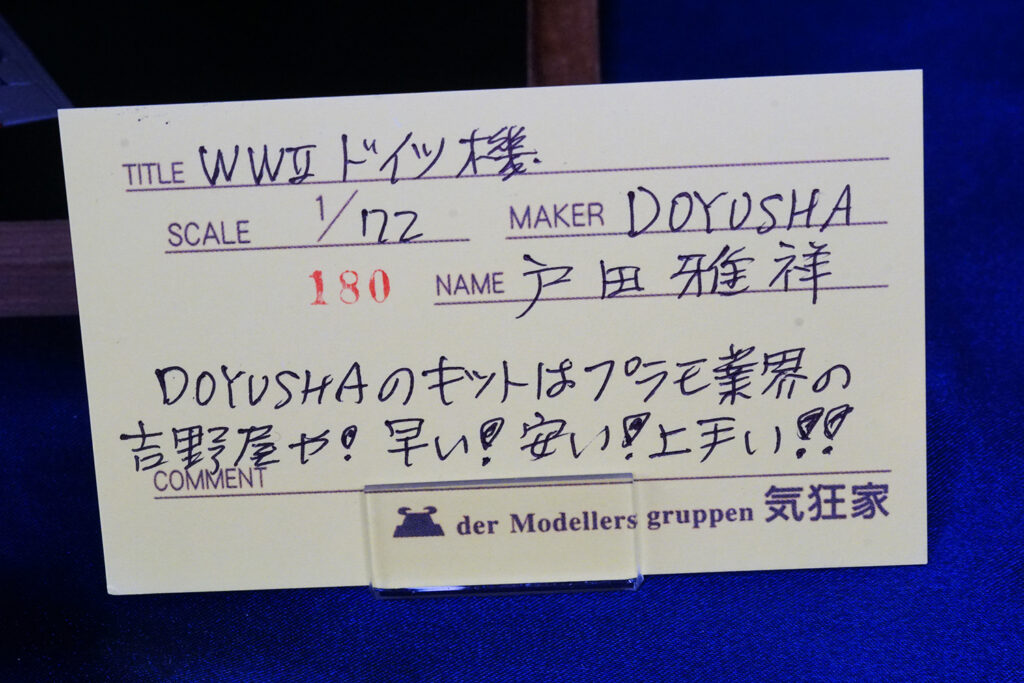 TITLE WWⅡ ドイツ機
SCALE 1/72 MAKER DOYUSHA
180 NAME 戸田雅祥
DOYUSHAのキットはプラモ業界の
吉野屋や!早い!安い!上手い!!
COMMENT
der Modellers gruppen 気狂家